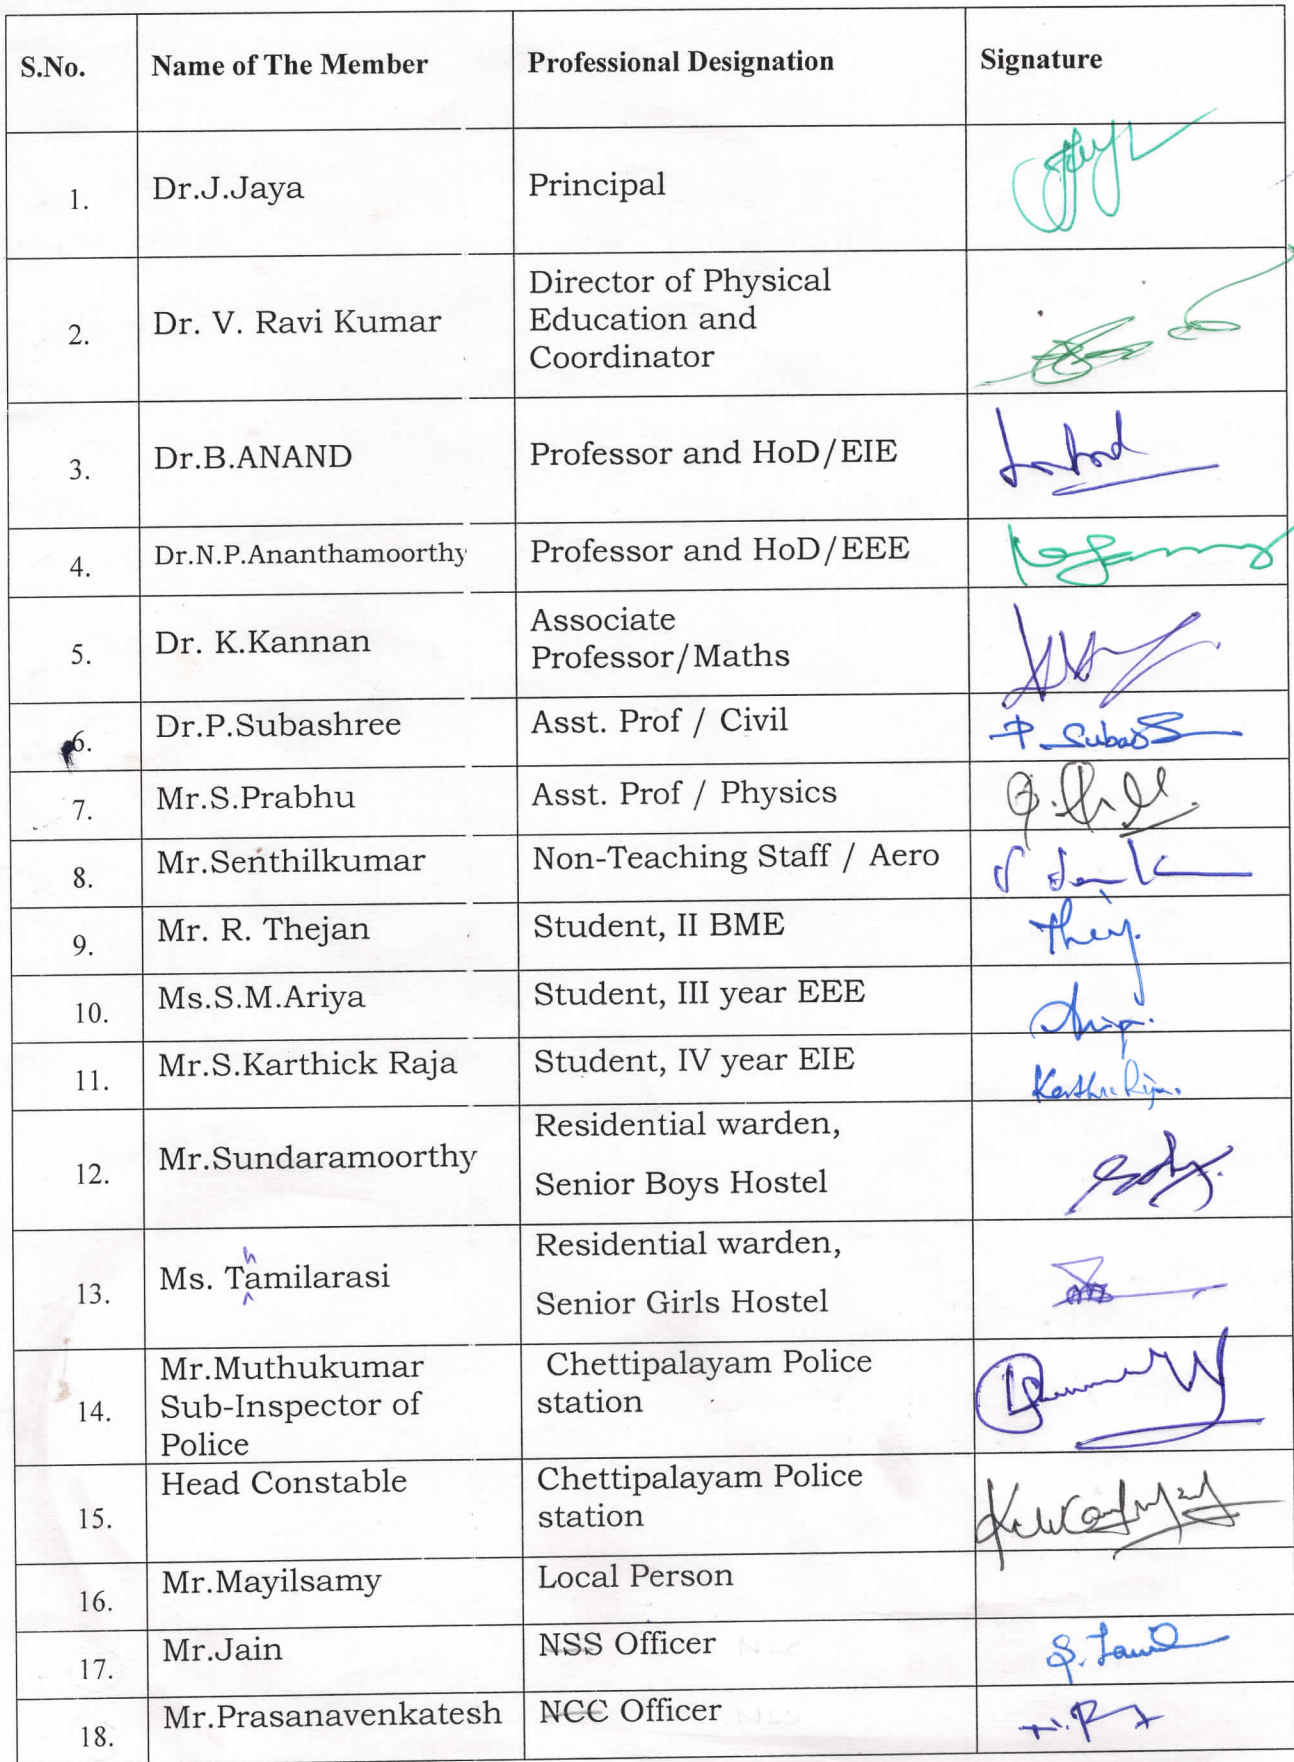 S.No. Name of The Member Professional Designation Signature
1. Dr.J.Jaya Principal
2. Dr. V. Ravi Kumar Director of Physical
Education and
Coordinator
3. Dr.B.ANAND Professor and HoD/EIE
4. Dr.N.P.Ananthamoorthy Professor and HoD/EEE
5. Dr. K.Kannan Associate
Professor/Maths
6. Dr.P.Subashree Asst. Prof / Civil P. Subas
7. Mr.S.Prabhu Asst. Prof / Physics
8. Mr.Senthilkumar Non-Teaching Staff / Aero
9. Mr. R. Thejan Student, II BME
10. Ms.S.M.Ariya Student, III year EEE
11. Mr.S.Karthick Raja Student, IV year EIE
12. Mr.Sundaramoorthy Residential warden,
Senior Boys Hostel
h
13. Ms. Tamilarasi Residential warden,
Senior Girls Hostel
14. Mr.Muthukumar Chettipalayam Police
Sub-Inspector of station
Police
15. Head Constable Chettipalayam Police
station
16. Mr.Mayilsamy Local Person
17. Mr.Jain NSS Officer
18. Mr.Prasanavenkatesh NCC Officer